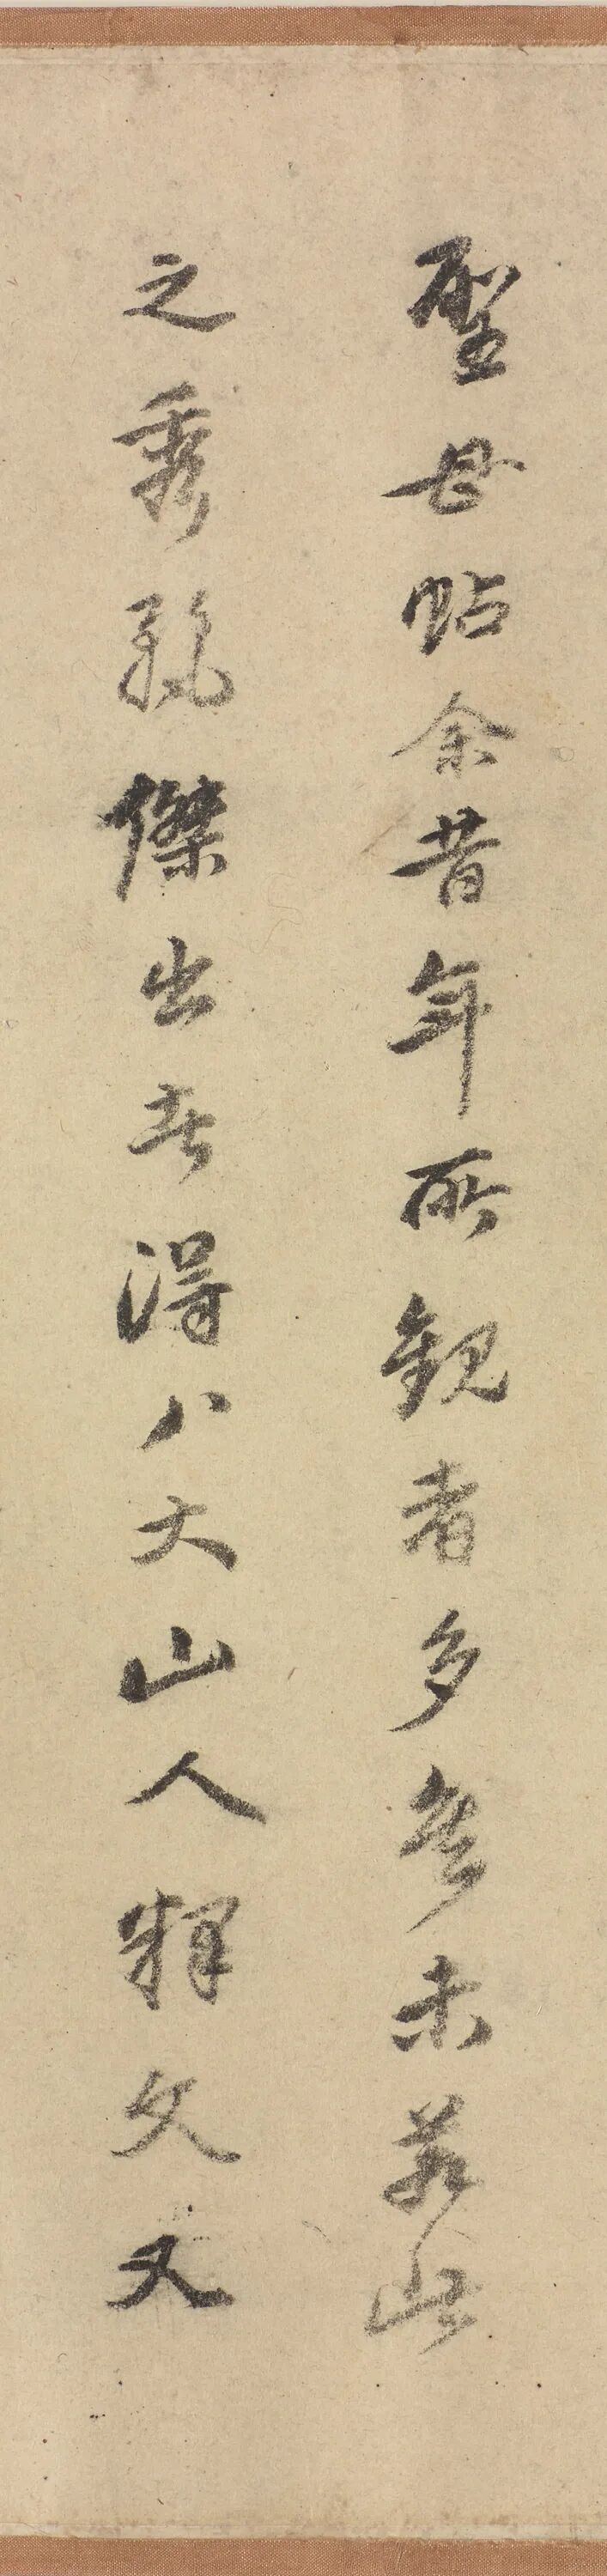 聖母帖余昔年所觀者多矣未若此
之秀勁傑出者得八大山人釋文又